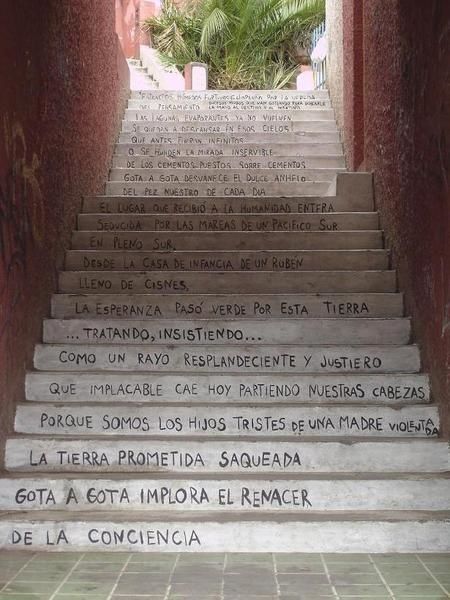 HÚMEDOS POR LA VEREDA
DEL PENSAMIENTO
LAS LAGUNAS EVAPORANTES YA NO VUELVEN
SE QUEDAN A DESCANSAR EN ESOS CIELOS
QUE ANTES FUERON INFINITOS
O SE HUNDEN LA MIRADA INSERVIBLE
DE LOS CEMENTOS PUESTOS SOBRE CEMENTOS
GOTA A GOTA DESVANECE EL DULCE ANHELO
DEL PEZ NUESTRO DE CADA DIA
EL LUGAR QUE RECIBIÓ A LA HUMANIDAD ENTERA
SEDUCIDA POR LAS MAREAS DE UN PACIFICO SUR
EN PLENO SUR,
DESDE LA CASA DE INFANCIA DE UN RUBÉN
LLENO DE CISNES,
LA ESPERANZA PASÓ VERDE POR ESTA TIERRA
...TRATANDO, INSISTIENDO...
COMO UN RAYO RESPLANDECIENTE Y JUSTIERO
QUE IMPLACABLE CAE HOY PARTIENDO NUESTRAS CABEZAS
PORQUE SOMOS LOS HIJOS TRISTES DE UNA MADRE VIOLENTADA
LA TIERRA PROMETIDA SAQUEADA
GOTA A GOTA IMPLORA EL RENACER
DE LA CONCIENCIA